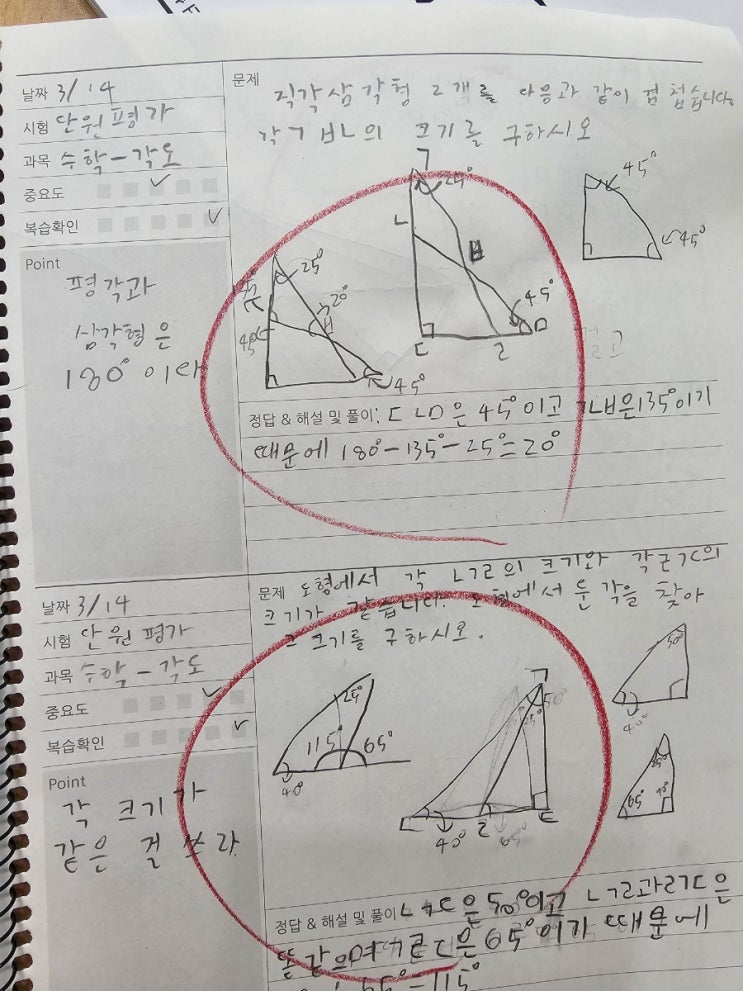 날짜 3/14
시험 단원평가
과목 수학-각도
중요도
복습확인
Point
평각과
삼각형은
180° 이다
문제
직각삼각형 2개를 다음과 같이 겹쳤습니다.
각ㄱㅂㄴ의 크기를 구하시오
ㄱ
25°
ㄴ
ㅂ
45°
ㄷ
ㄹ
ㅁ
45°
45°
25°
20°
45°
45°
정답 & 해설 및 풀이: ㄷㄴㅁ은 45°이고 ㄱㄴㅂ은135°이기
때문에 180°-135°-25°=20°
날짜 3/14
시험 단원평가
과목 수학-각도
중요도
복습확인
Point
각 크기가
같은 걸 쓰라
문제 도형에서 각 ㄴㄱㄹ의 크기와 각ㄹㄱㄷ의
크기가 같습니다. 도형에서 둔각을 찾아
그 크기를 구하시오.
25°
115°
65°
40°
ㄱ
50°
25°
ㄴ
40°
ㄹ
65°
ㄷ
50°
40°
25°
65°
90°
정답 & 해설 및 풀이 ㄴㄱㄷ은 50°이고 ㄴㄱㄹ과ㄹㄱㄷ은
똑같으며 ㄱㄹㄷ은 65°이기 때문에
65°=115°